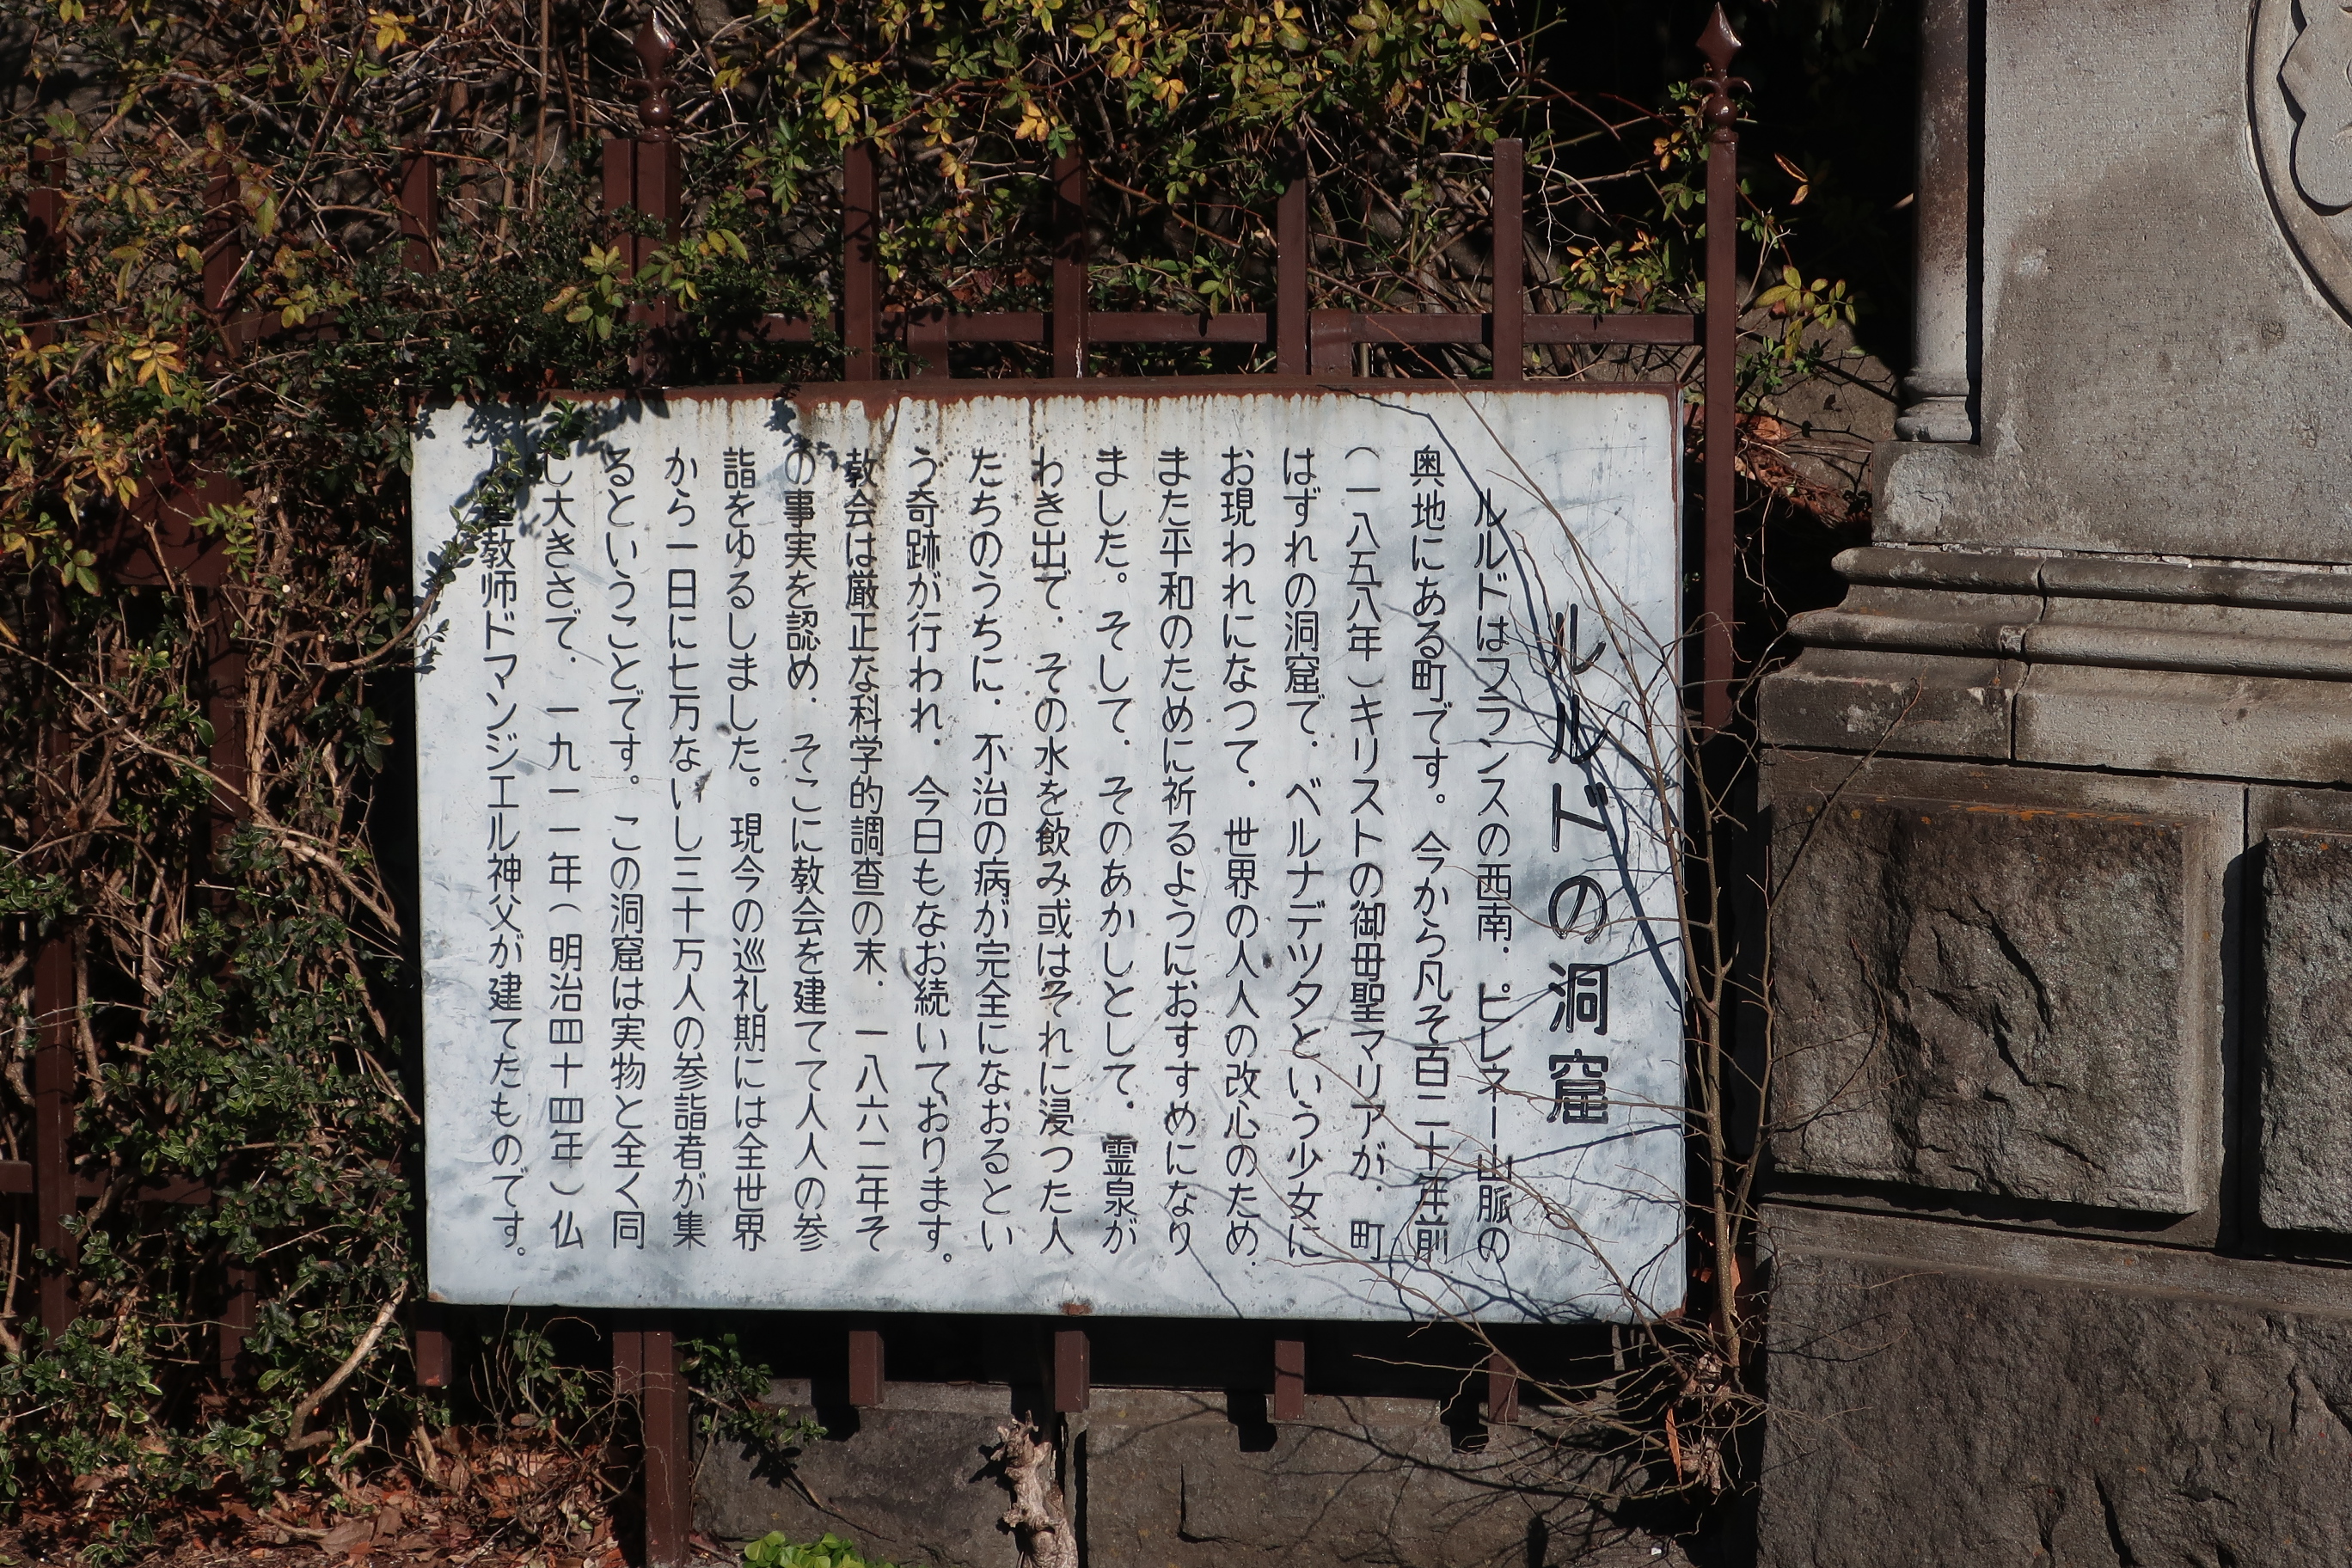 ルルドの洞窟
ルルドはフランスの西南．ピレネー山脈の
奥地にある町です。今から凡そ百二十年前
（一八五八年）キリストの御母聖マリアが．町
はずれの洞窟で．ベルナデツタという少女に
お現われになつて．世界の人人の改心のため．
また平和のために祈るようにおすすめになり
ました。そして．そのあかしとして．霊泉が
わき出で．その水を飲み或はそれに浸つた人
たちのうちに．不治の病が完全になおるとい
う奇跡が行われ．今日もなお続いております。
教会は厳正な科学的調査の末．一八六二年そ
の事実を認め．そこに教会を建てて人人の参
詣をゆるしました。現今の巡礼期には全世界
から一日に七万ないし三十万人の参詣者が集
るということです。この洞窟は実物と全く同
じ大きさで．一九一一年（明治四十四年）仏
教師ドマンジエル神父が建てたものです。